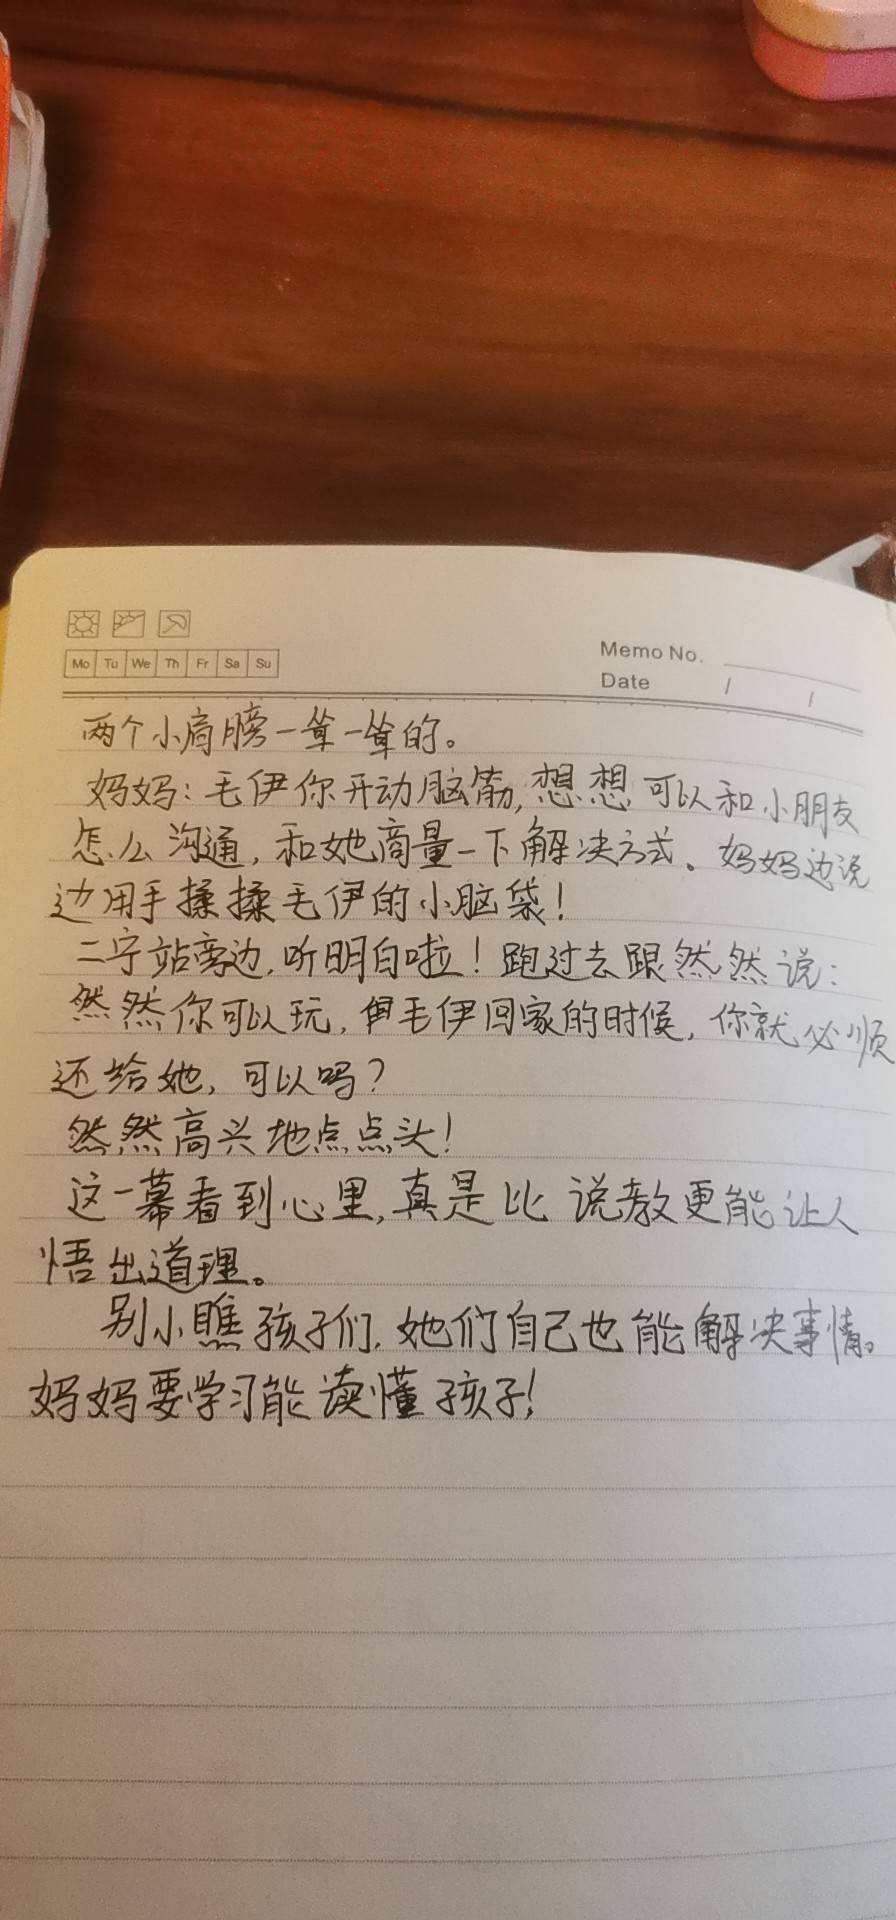 Mo Tu We Th Fr Sa Su
Memo No.
Date / /
两个小肩膀一耸一耸的。
妈妈：毛伊你开动脑筋，想想可以和小朋友
怎么沟通，和她商量一下解决方式。妈妈边说
边用手揉揉毛伊的小脑袋！
二宁站旁边，听明白啦！跑过去跟然然说：
然然你可以玩，但毛伊回家的时候，你就必须
还给她，可以吗？
然然高兴地点点头！
这一幕看到心里，真是比说教更能让人
悟出道理。
别小瞧孩子们，她们自己也能解决事情。
妈妈要学习能读懂孩子！